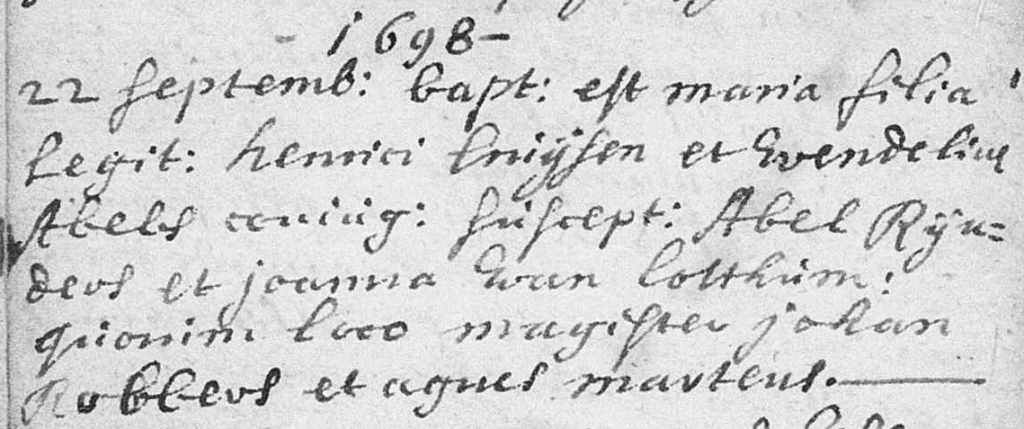 - 1698 -
22 septemb: bapt: est maria filia
Legit: henrici knijsen et wendelinae
Abels coniüg: süscept: Abel Rijn=
ders et joanna van lotthüm:
quorüm loco magister johan
Robbers et agnes martens.